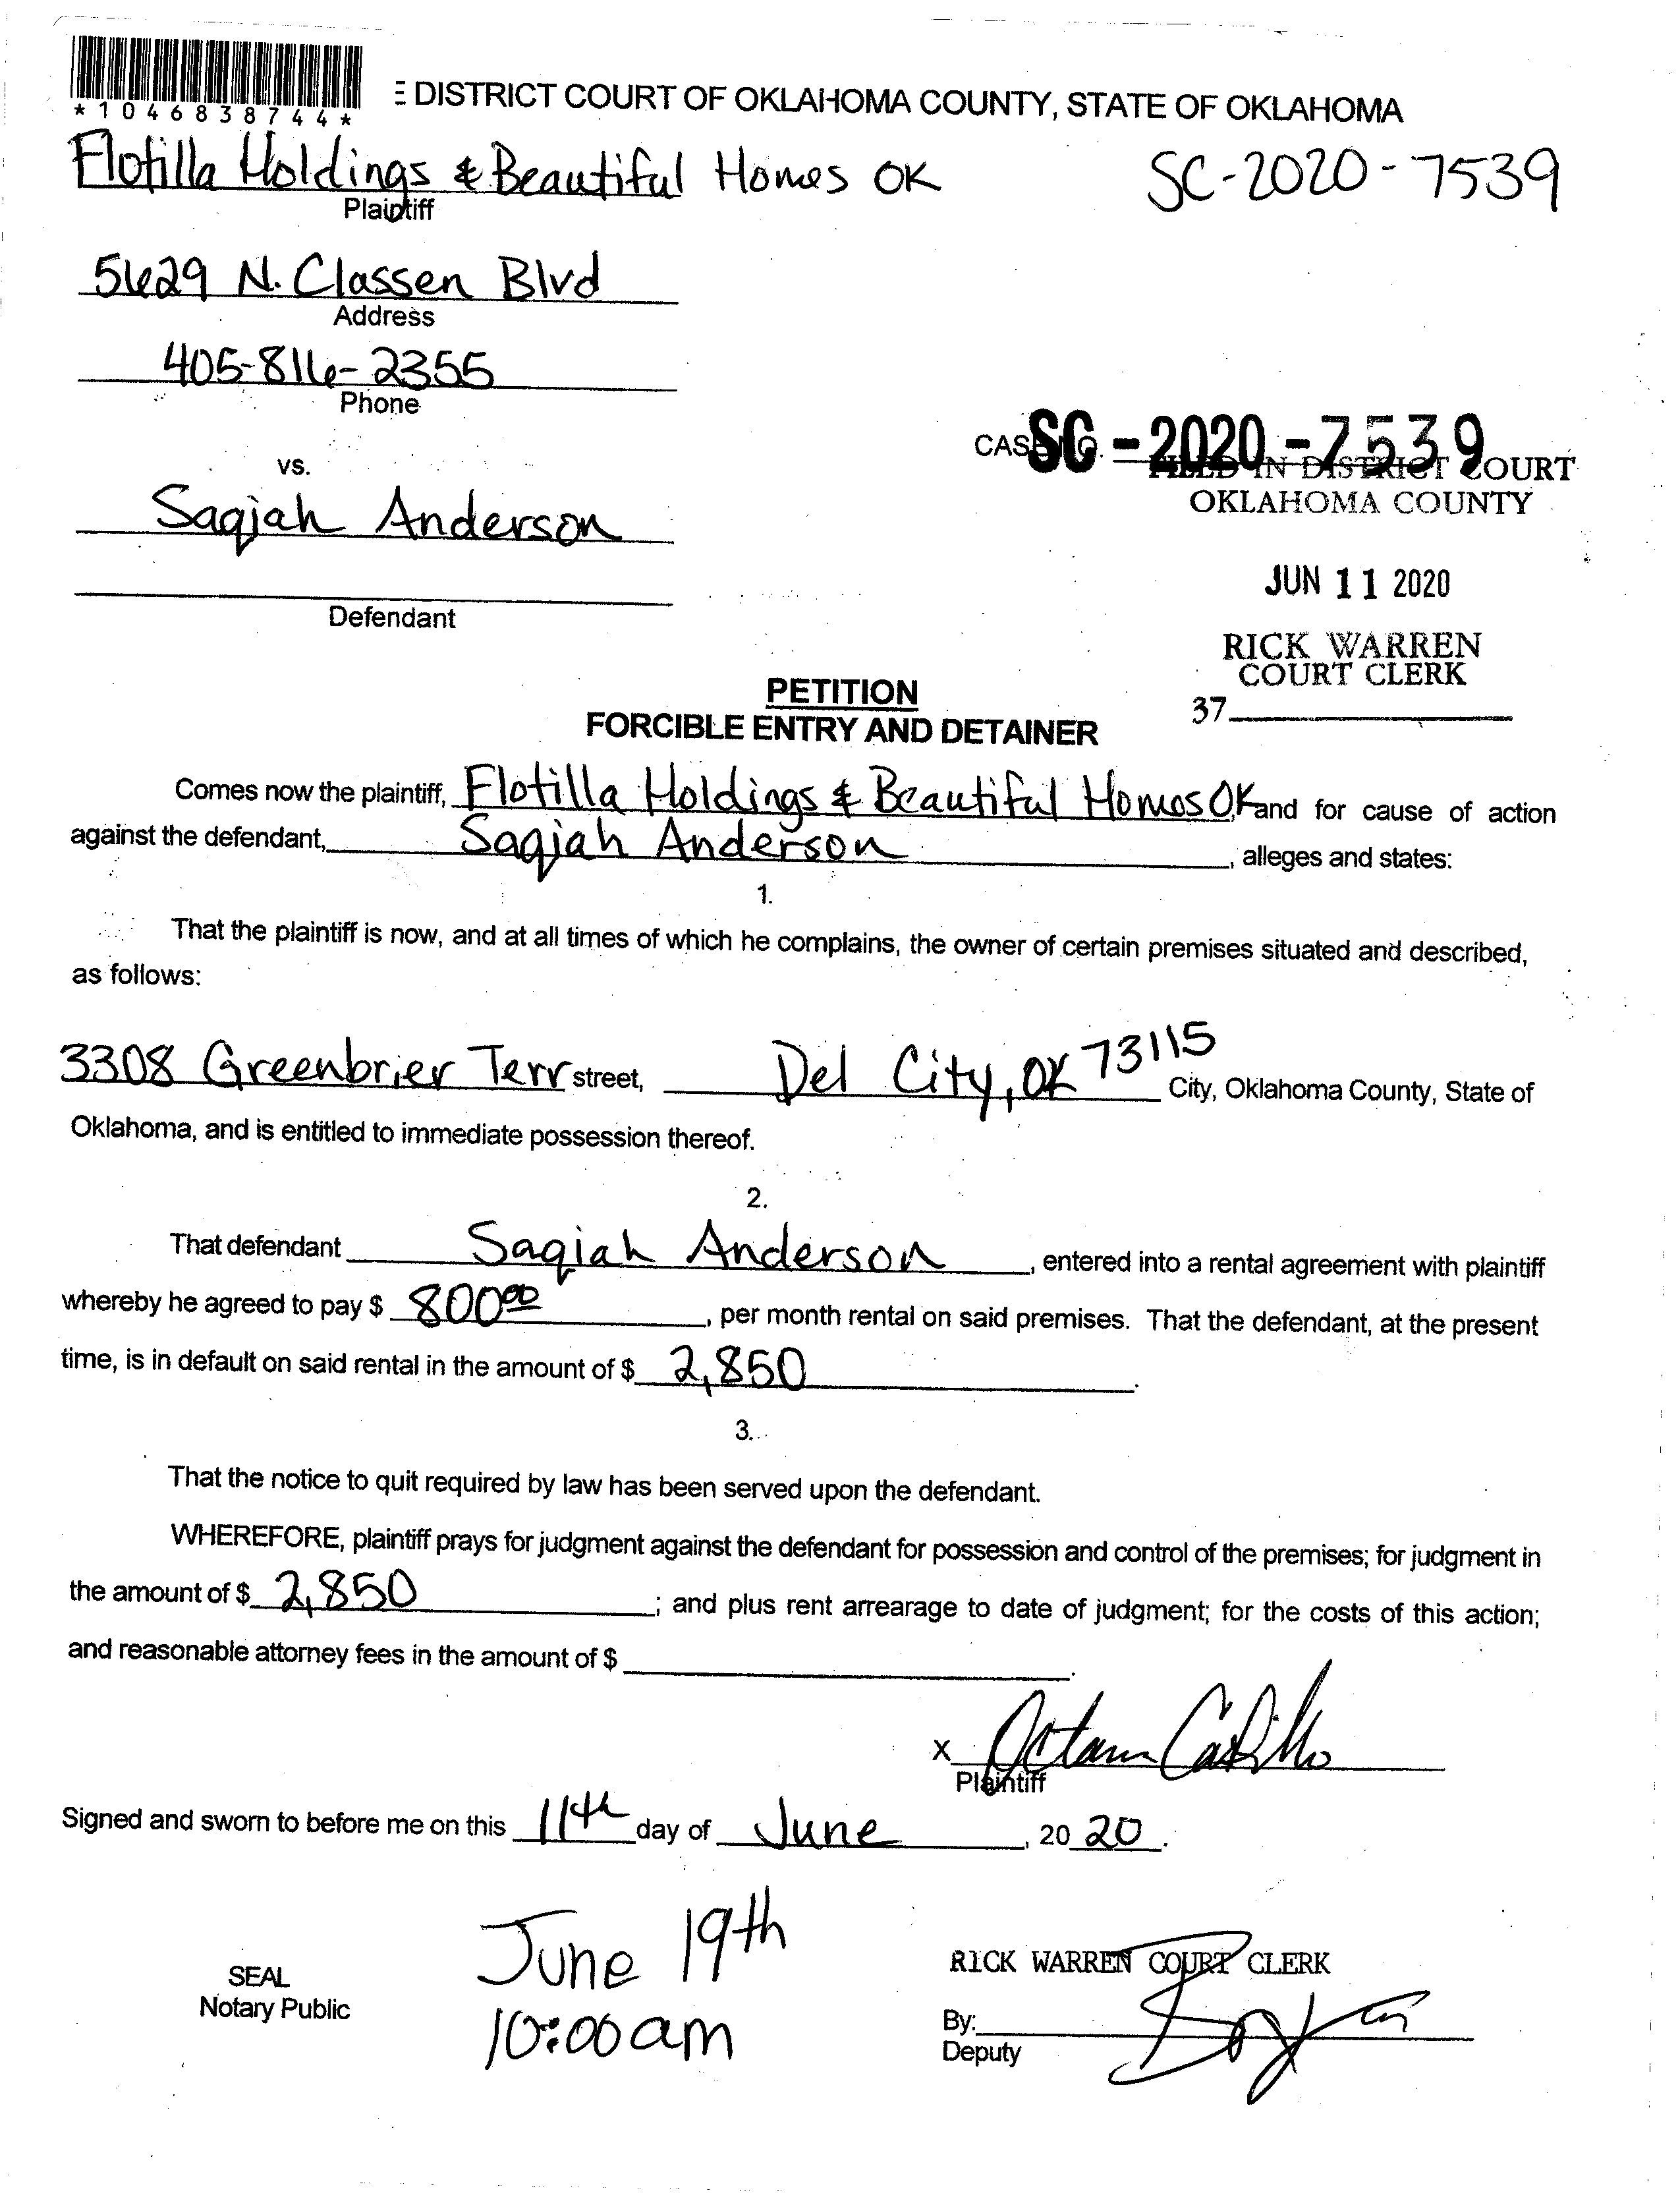 *1046838744*
E DISTRICT COURT OF OKLAHOMA COUNTY, STATE OF OKLAHOMA
Flotilla Holdings & Beautiful Homes OK
SC-2020-7539
Plaintiff
5629 N. Classen Blvd
Address
405-816-2355
Phone
CASE NO. SC-2020-7539
vs.
FILED IN DISTRICT COURT
OKLAHOMA COUNTY
Saqiah Anderson
JUN 11 2020
Defendant
RICK WARREN
COURT CLERK
37
PETITION
FORCIBLE ENTRY AND DETAINER
Comes now the plaintiff, Flotilla Holdings & Beautiful Homes OK, and for cause of action
against the defendant, Saqiah Anderson, alleges and states:
1.
That the plaintiff is now, and at all times of which he complains, the owner of certain premises situated and described,
as follows:
3308 Greenbrier Terr street, Del City, OK 73115 City, Oklahoma County, State of
Oklahoma, and is entitled to immediate possession thereof.
2.
That defendant Saqiah Anderson, entered into a rental agreement with plaintiff
whereby he agreed to pay $ 800.00, per month rental on said premises. That the defendant, at the present
time, is in default on said rental in the amount of $ 2,850.
3.
That the notice to quit required by law has been served upon the defendant.
WHEREFORE, plaintiff prays for judgment against the defendant for possession and control of the premises; for judgment in
the amount of $ 2,850; and plus rent arrearage to date of judgment; for the costs of this action;
and reasonable attorney fees in the amount of $ .
X
Plaintiff
Signed and sworn to before me on this 11th day of June, 20 20.
June 19th
10:00am
SEAL
Notary Public
RICK WARREN COURT CLERK
By:
Deputy